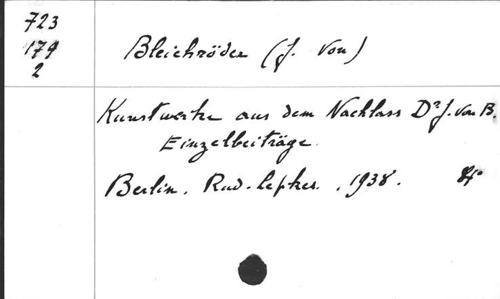 723
179
2
Bleichröder (J. von)
Kunstwerke aus dem Nachlass Dr J. von B.
Einzelbeiträge.
Berlin. Rud. Lepkes. , 1938. 8°